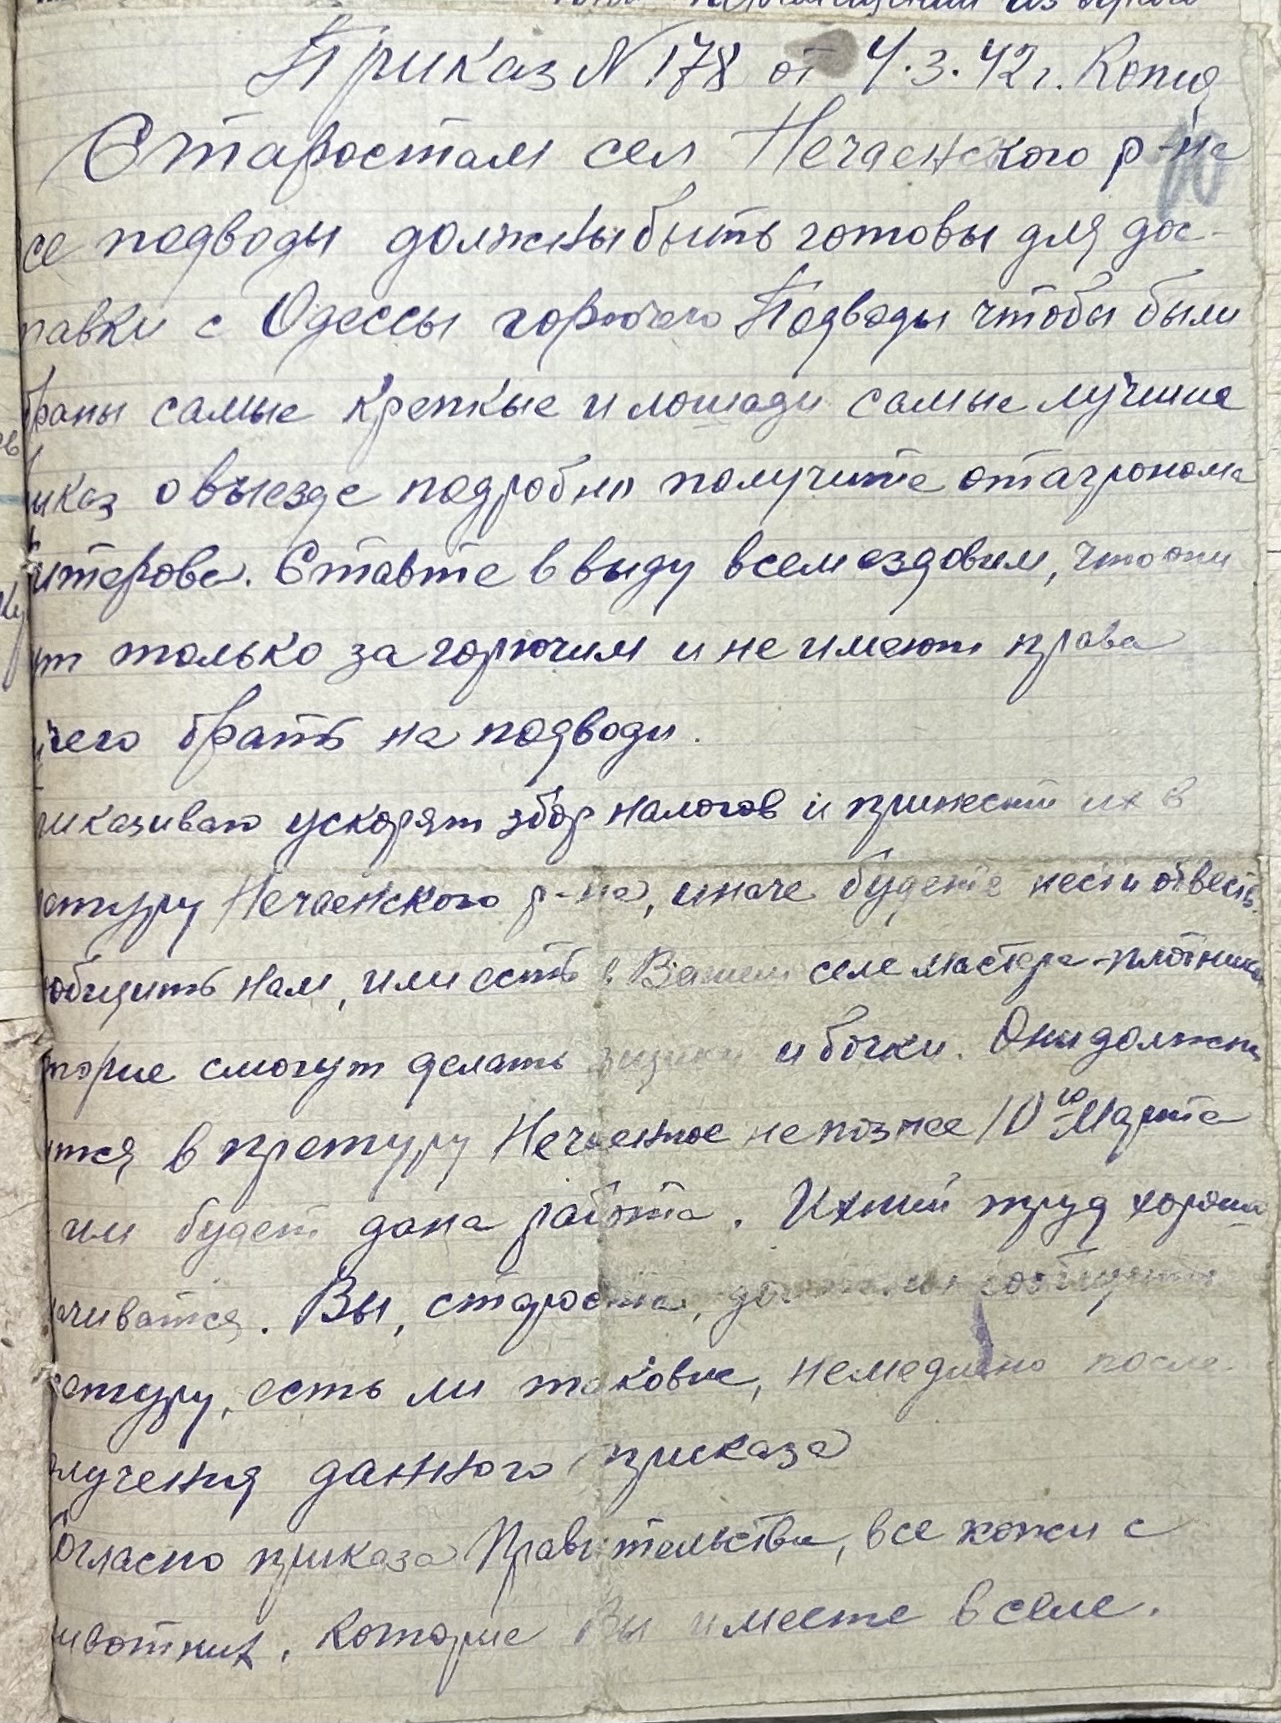 Приказ N 178 от 4.3.42 г. Копия
Старостам сел Нечаенского р-на
се подводы должны быть готовы для дос-
тавки с Одессы горючего Подводы чтобы были
браны самые крепкые и лошади самые лучшие
иказ о выезде подробно получите от агронома
итерова. Ставте в выду всем ездовым, что они
ут только за горючим и не имеют права
ичего брать на подводи.
риказиваю ускорят збор налогов и принести их в
етуру Нечаенского р-на, иначе будете нести ответств.
общить нам, или есть в Вашем селе мастера-плотники
торые смогут делать ящики и бочки. Они должны
ится в претуру Нечаенное не познее 10го Марта
им будет дана работа. Ихний труд хорошо
ачиватся. Вы, староста, должны сообщить
ретуру, есть ли таковые, немедлено после
лучения данного приказа
Согласно приказа Правительства, все кожи с
ивотных, которые Вы имеете в селе.